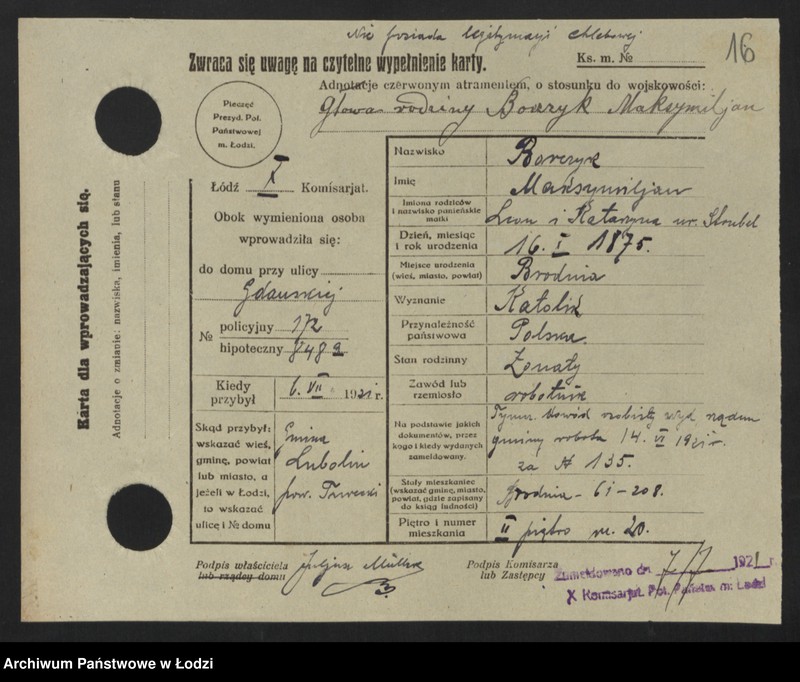 Nie posiada legitymacji chlebowej
16
Zwraca się uwagę na czytelne wypełnienie karty.
Ks. m. №
Adnotacje czerwonym atramentem, o stosunku do wojskowości:
Głowa rodziny Boczyk Maksymiljan
Karta dla wprowadzających się.
Adnotacje o zmianie: nazwiska, imienia, lub stanu
Pieczęć
Prezyd. Pol.
Państwowej
m. Łodzi.
Łódź X Komisarjat.
Obok wymieniona osoba
wprowadziła się:
do domu przy ulicy
Gdańskiej
№ policyjny 172
hipoteczny 848 a
Kiedy przybył 6. VII 1921 r.
Skąd przybył:
wskazać wieś,
gminę, powiat
lub miasto, a
jeżeli w Łodzi,
to wskazać
ulicę i № domu
Gmina
Lubolin
pow. Turecki
Nazwisko
Imię Maksymiljan
Imiona rodziców
i nazwisko panieńskie
matki
Leon i Katarzyna ur.
Dzień, miesiąc
i rok urodzenia
16. I 1875.
Miejsce urodzenia
(wieś, miasto, powiat)
Brodnia
Wyznanie Katolik
Przynależność
państwowa
Polska
Stan rodzinny Żonaty
Zawód lub
rzemiosło
robotnik
Na podstawie jakich
dokumentów, przez
kogo i kiedy wydanych
zameldowany.
Tymcz. dowód osobisty wyd.
gminy 14. VI 1921 r.
za № 135.
Stały mieszkaniec
(wskazać gminę, miasto,
powiat, gdzie zapisany
do ksiąg ludności)
Brodnia - 61 - 208.
Piętro i numer
mieszkania
II piętro nr. 20.
Podpis właściciela
lub rządcy domu
Juljusz Müller
Podpis Komisarza
lub Zastępcy
Zameldowano dn. 7/7 1921 r.
X Komisarjat Pol. Państw. m. Łodzi
Archiwum Państwowe w Łodzi